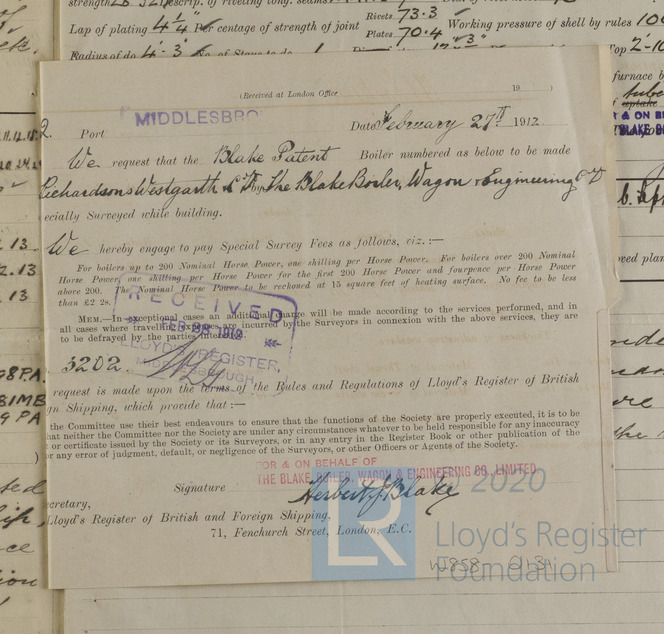 strength
Lap of plating 4 1/4 Per centage of strength of joint
Rivets 73.3
Plates 70.4
Working pressure of shell by rules
Radius of do. 4'-3
(Received at London Office 19 )
MIDDLESBRO
Port
Date February 27th 1912
We request that the Blake Patent Boiler numbered as below to be made
Richardsons Westgarth & Co Ld by The Blake Boiler, Wagon & Engineering Co Ld
ecially Surveyed while building.
We hereby engage to pay Special Survey Fees as follows, viz.:—
For boilers up to 200 Nominal Horse Power, one shilling per Horse Power. For boilers over 200 Nominal
Horse Power, one shilling per Horse Power for the first 200 Horse Power and fourpence per Horse Power
above 200. The Nominal Horse Power to be reckoned at 15 square feet of heating surface. No fee to be less
than £2 2s.
MEM.—In exceptional cases an additional charge will be made according to the services performed, and in
all cases where travelling expenses are incurred by the Surveyors in connexion with the above services, they are
to be defrayed by the parties
RECEIVED
FEB 28 1912
LLOYD'S REGISTER,
MIDDLESBROUGH
3202.
request is made upon the terms of the Rules and Regulations of Lloyd's Register of British
gn Shipping, which provide that:—
the Committee use their best endeavours to ensure that the functions of the Society are properly executed, it is to be
that neither the Committee nor the Society are under any circumstances whatever to be held responsible for any inaccuracy
t or certificate issued by the Society or its Surveyors, or in any entry in the Register Book or other publication of the
or any error of judgment, default, or negligence of the Surveyors, or other Officers or Agents of the Society.
FOR & ON BEHALF OF
THE BLAKE BOILER, WAGON & ENGINEERING CO. LIMITED
Signature Herbert J. Blake
ecretary,
Lloyd's Register of British and Foreign Shipping,
71, Fenchurch Street, London, E.C.
2020
LR
Lloyd's Register
Foundation
W858-0131